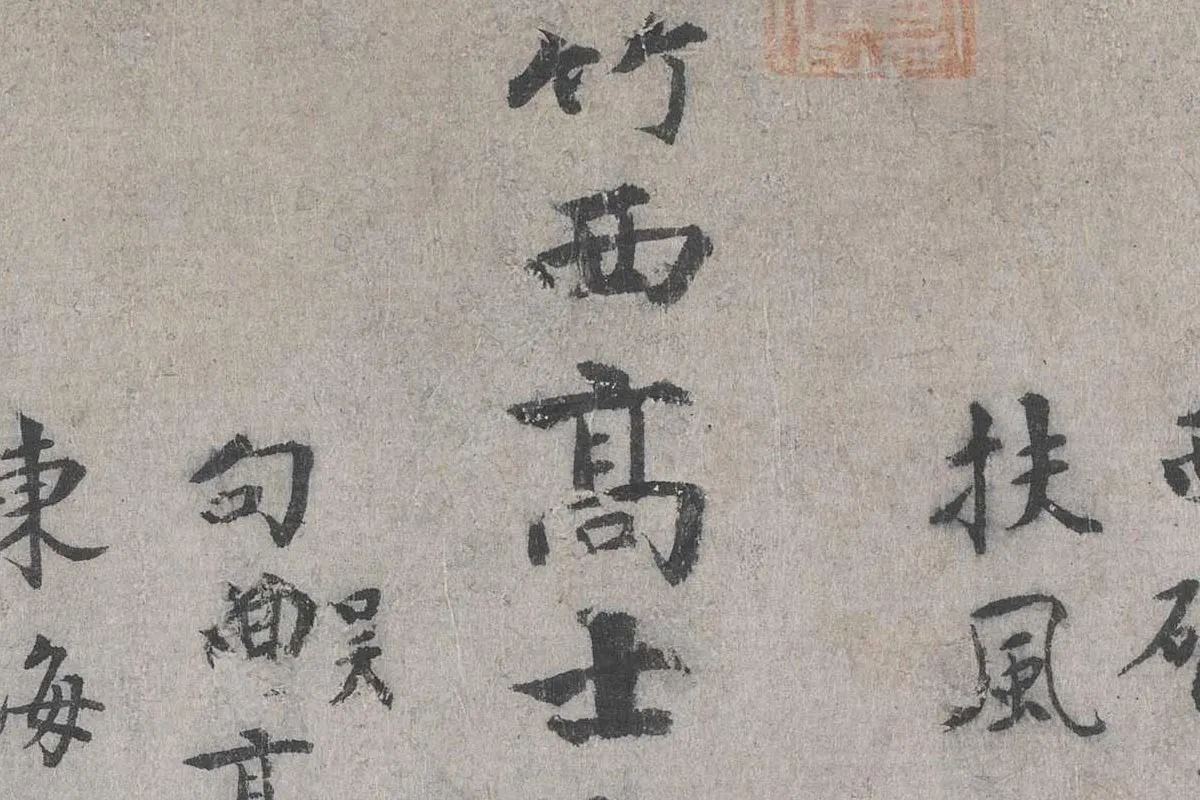 扶風
竹西髙士
吴
句曲
東海